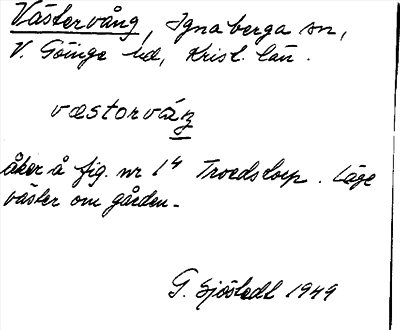 Västervång, Ignaberga sn,
V. Göinge hd, Krist. län.
væstorváŋ
åker å fig. nr 1⁴ Troedstorp. Läge
väster om gården.
G. Sjöstedt 1949